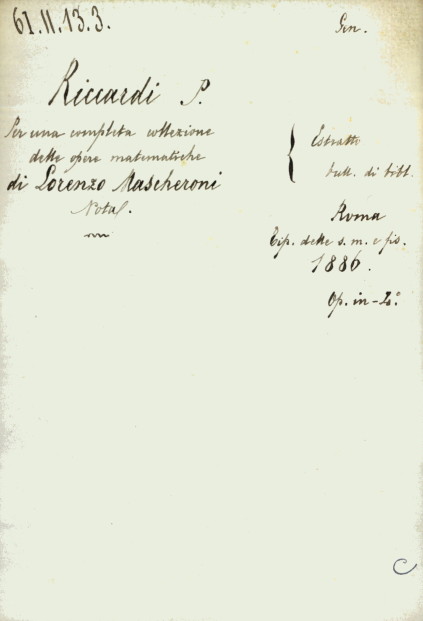 61.II.13.3.
Gen.
Riccardi P.
Per una completa collezione
delle opere matematiche
di Lorenzo Mascheroni
Nota.
Estratto
bull. di bibl.
Roma
Tip. delle s. m. e fis.
1886.
Op. in-4°
C